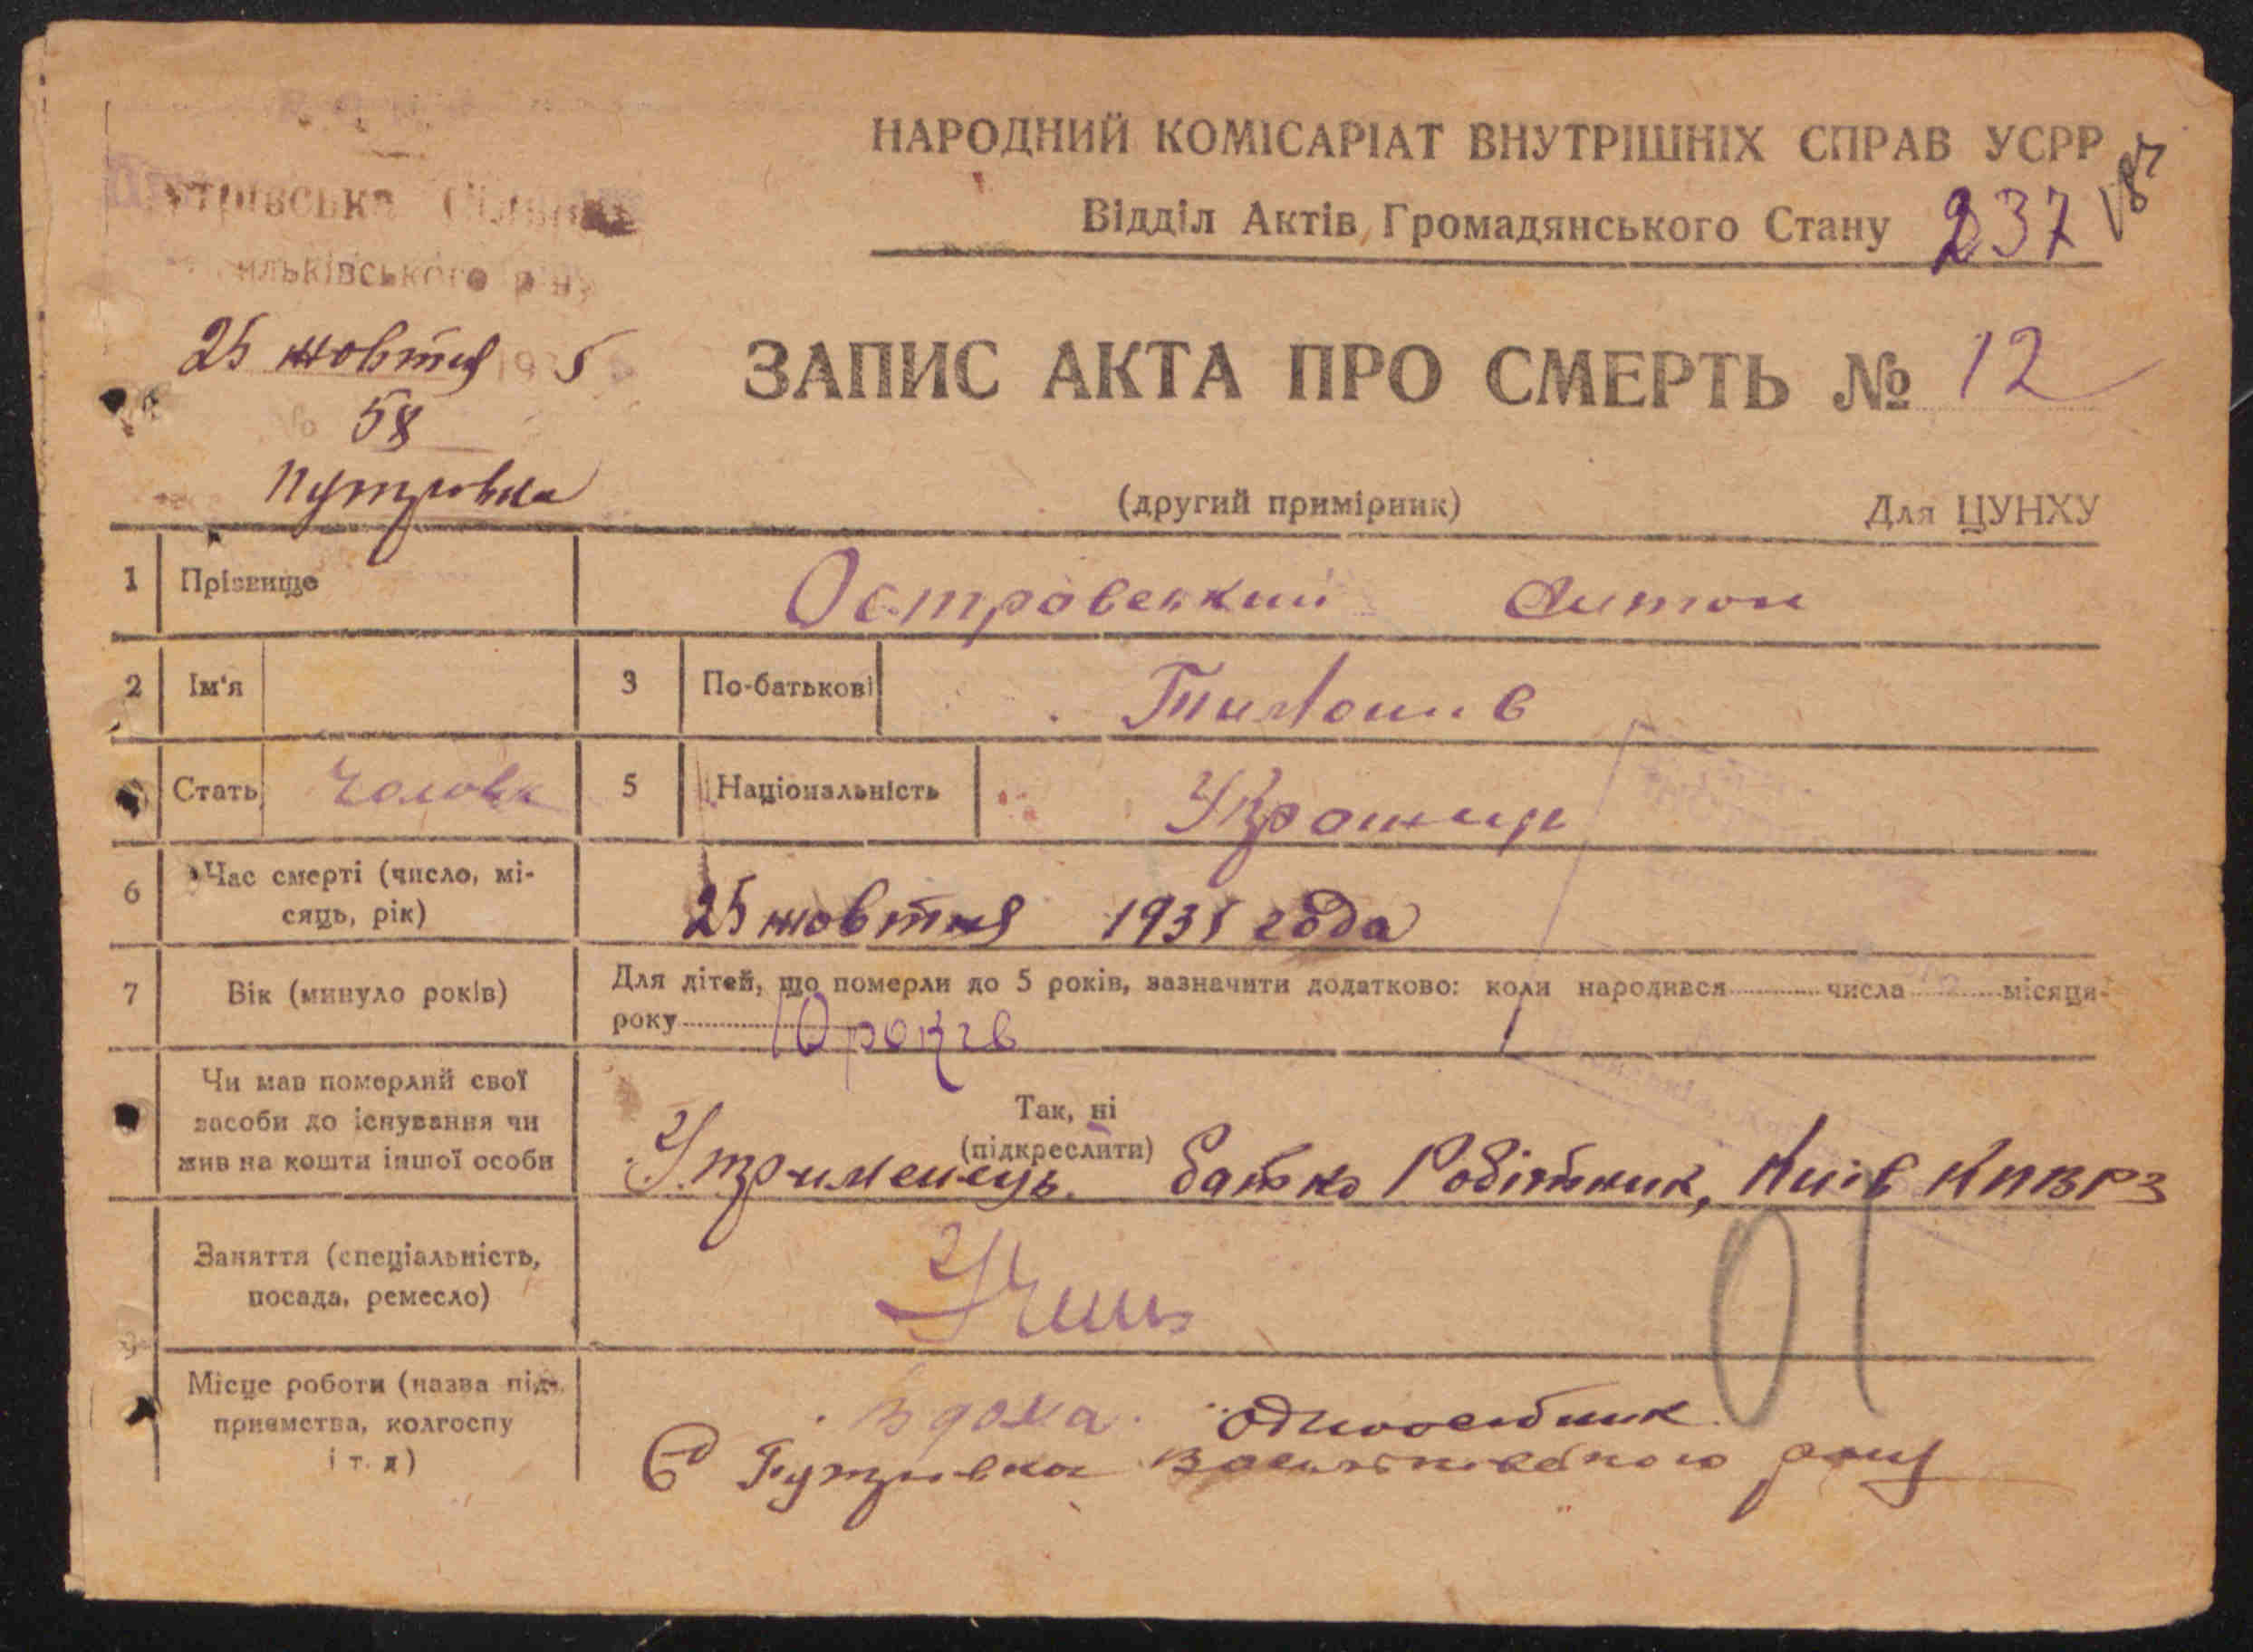 НАРОДНИЙ КОМІСАРІАТ ВНУТРІШНІХ СПРАВ УСРР
Відділ Актів Громадянського Стану 237
25 жовтня 1935
№ 58
Путрівка
ЗАПИС АКТА ПРО СМЕРТЬ № 12
(другий примірник) Для ЦУНХУ
1 Прізвище Островський Антон
2 Ім'я 3 По-батькові
Стать Чоловк 5 Національність
6 Час смерті (число, мі-
сяць, рік) 25 жовтня 1935 года
7 Вік (минуло років) Для дітей, що померли до 5 років, зазначити додатково: коли народився числа місяця
року 10 років
Чи мав померлий свої
засоби до існування чи
жив на кошти іншої особи
Так, ні
(підкреслити)
Утрименець. батько Робітник, Київ КПВРЗ
Заняття (спеціальність,
посада, ремесло) Учинь
Місце роботи (назва під-
приємства, колгоспу
і т. д)
вдома. одноосібник
С Путрівка Васильківського рону